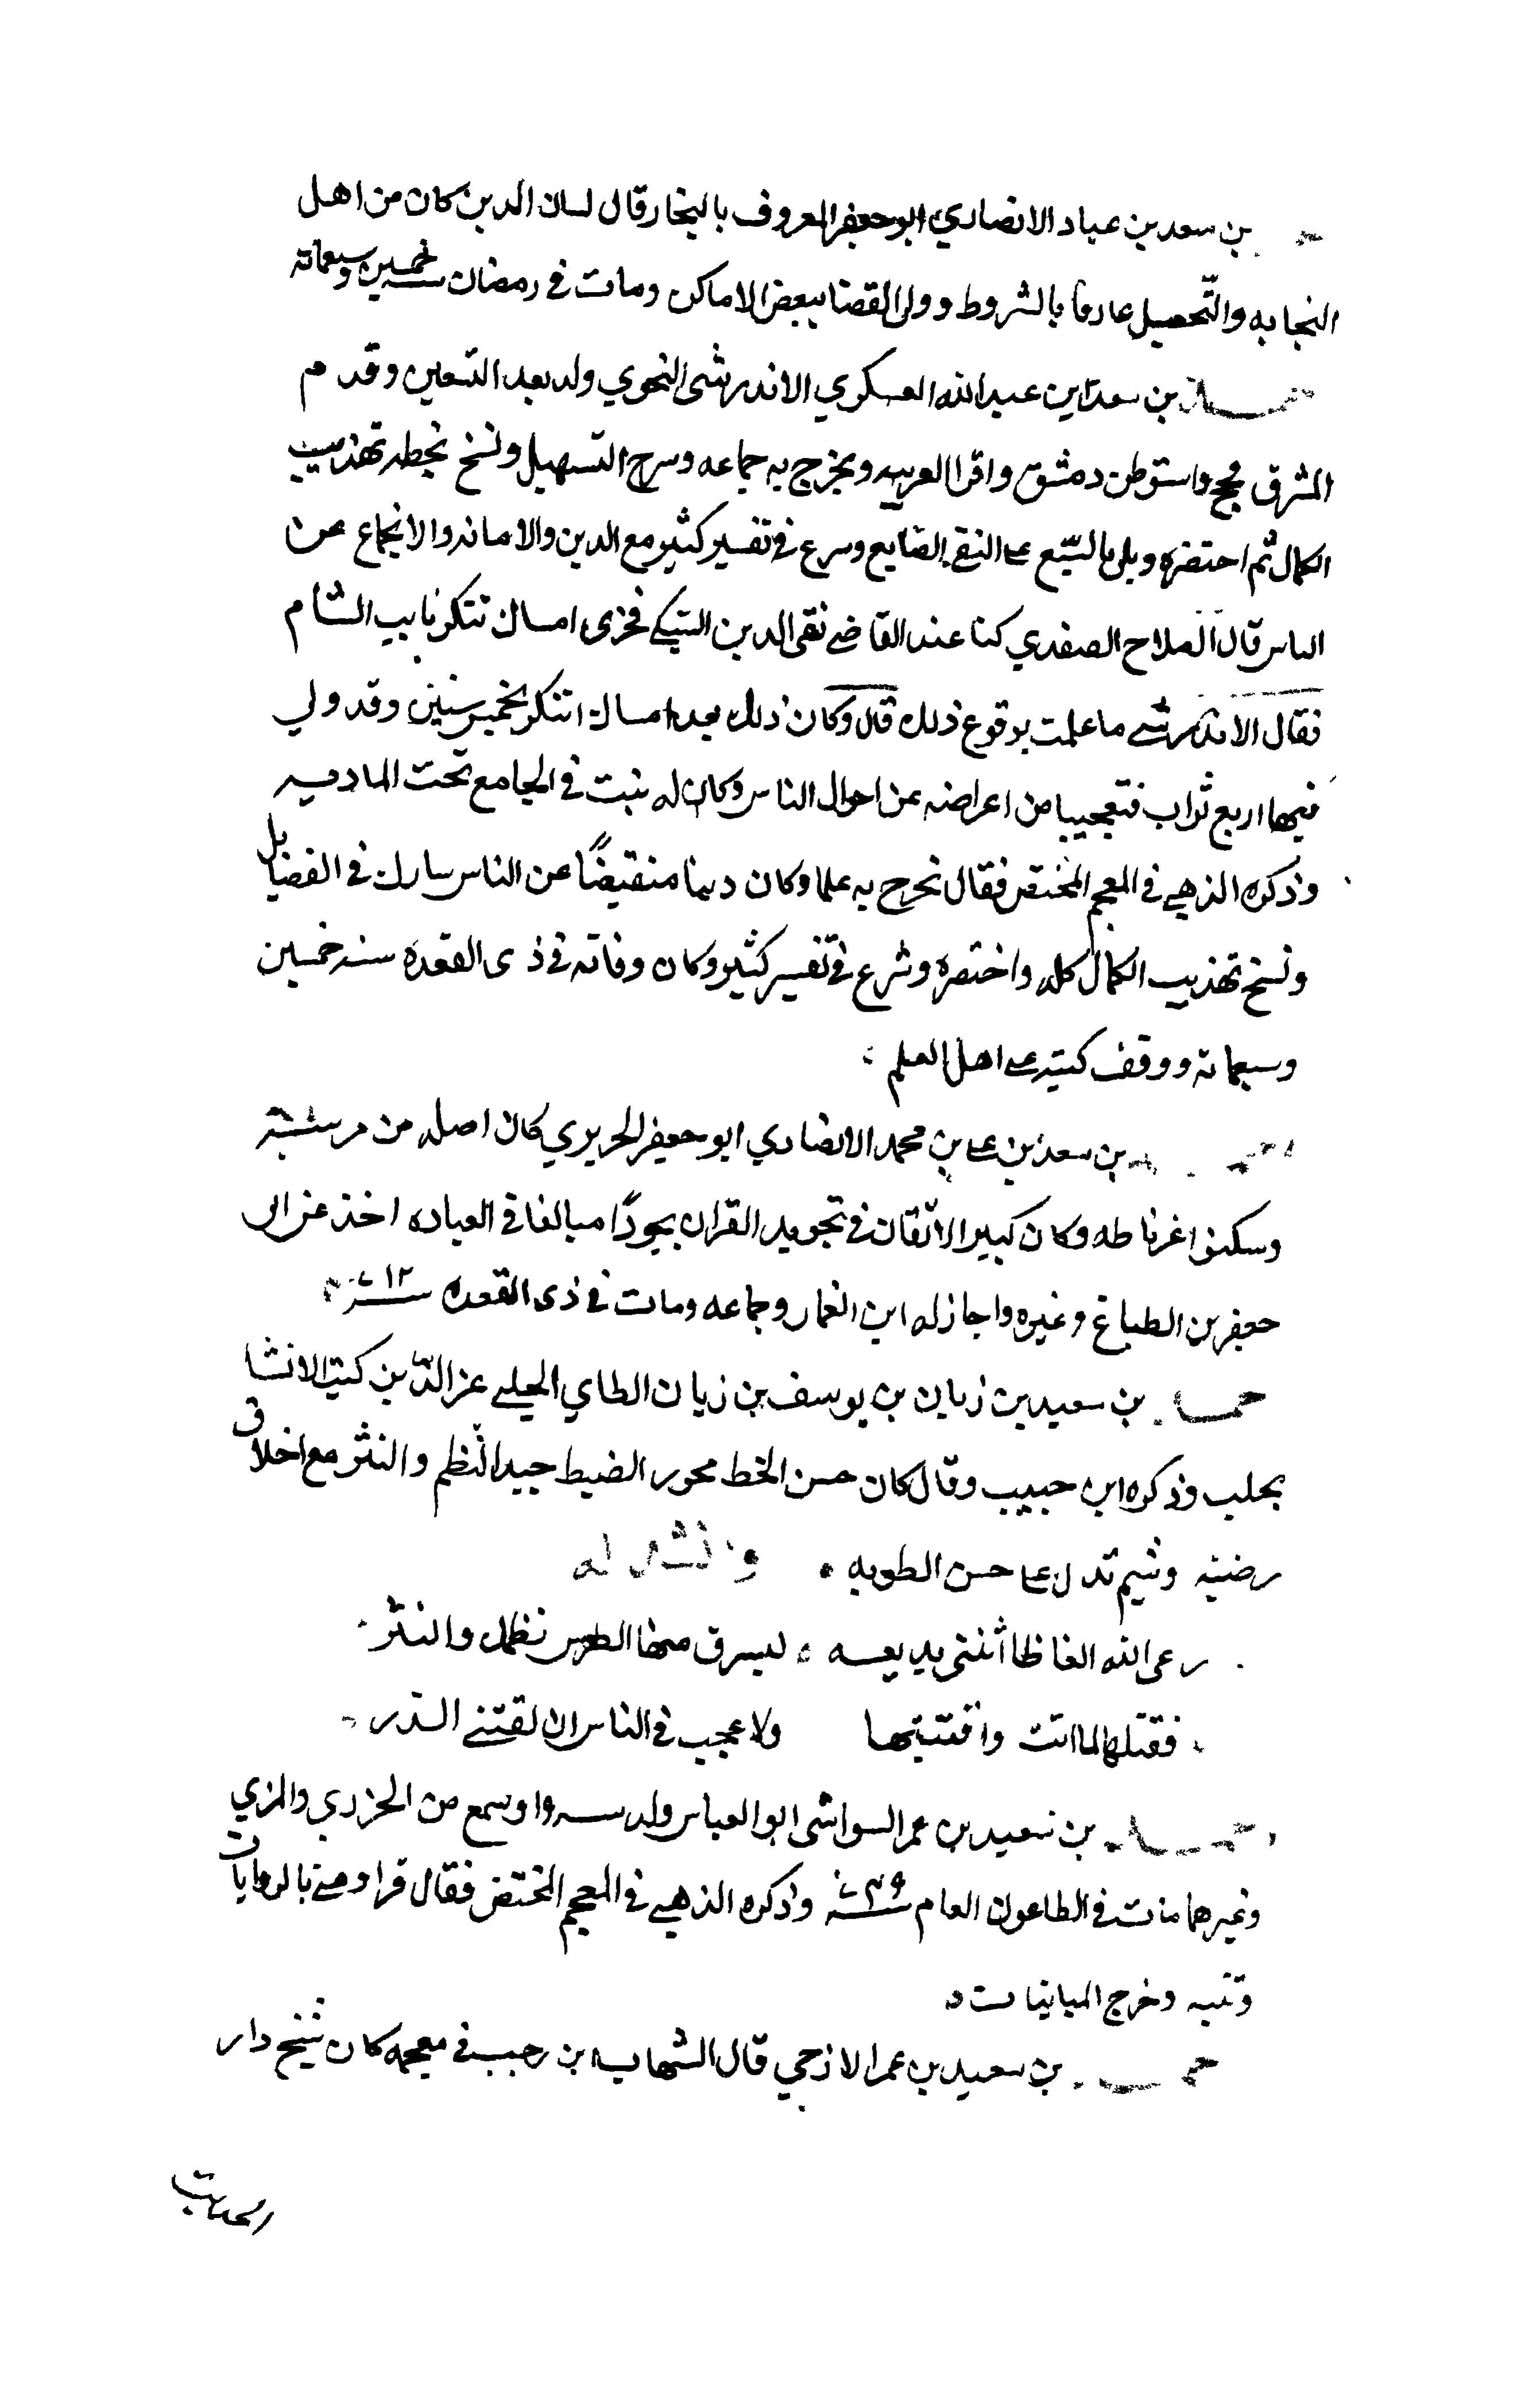 بن سعد بن عياد الانصاري ابو جعفر المعروف بالنجار قال لسان الدين كان من اهل
النجابه والتّحصيل عارفا بالشروط وولى القضا ببعض الاماكن ومات في رمضان سنة خمسين وسبعماته
بن سعد بن عبد الله العسكري الاندرشى النحوي ولد بعد التسعين وقدم
المشرق فحج واستوطن دمشق واقرا العربيه وتخرج به جماعه وسرح التسهيل ونسخ بخطه تهذيب
الكمال ثم احتصره وبلى بالتتبع على النفع الضايع وسرع في تفسير كثير مع الدين والامانه والانجماع عن
الناس قال الصلاح الصفدي كنا عند القاضى تقى الدين السبكى فجرى امساك تنكز نايب الشام
فقال الاندرشى ما علمت بوقوع ذلك قال وكان ذلك بعد امساك تنكز بخمس سنين وقد ولي
فيها اربع نواب فتعجبنا من اعراضه عن احوال الناس وكان له بيت في الجامع تحت الماذنيه
وذكره الذهبي في المعجم المختص فقال تخرج به علما وكان دينا منقبضًا عن الناس سارك في الفضايل
ونسخ تهذيب الكمال كله واختصره وشرع في تفسير كثير وكان وفاته في ذى القعده سنه خمسين
وسبعماته ووقف كتبه على اهل العلم
بن سعد بن على بن محمد الانصاري ابو جعفر الحريري كان اصله من
وسكن اغرناطه وكان كبير الاتقان في تجويد القران مبالغا في العباده اخذ عن ابى
جعفر بن الطباع وغيره واجاز له ابن الغمار وجماعه ومات في ذى القعده سنة ٧١٢
بن سعيد بن زيان بن يوسف بن زيان الطاي الحلبي عز الدّين كتب الانشا
بحلب وذكره ابن حبيب وقال كان حسن الخط محور الضبط جيد النظم والنثر مع اخلاق
رضيه وشيم تدل على حسن الطويه وانشد له
رعى الله الفاظا أتتنى بديعسه ليسرق منها الطرس نظمك والنثر
فقبلتها لما اتت وافتتنتها ولا عجب في الناس ان لقتنى الدر
بن سعيد بن عمر السواشى ابو العباس ولد سنه وسمع من الجزري والمزي
وغيرهما مات في الطاعون العام سنة ٧٤٩ وذكره الذهبي في المعجم المختص فقال قرا ومنى بالروايات
وتنبه وخرج المباينات
بن سعيد بن عمر الازجي قال الشهاب بن رجب في معجمه كان شيخ دار